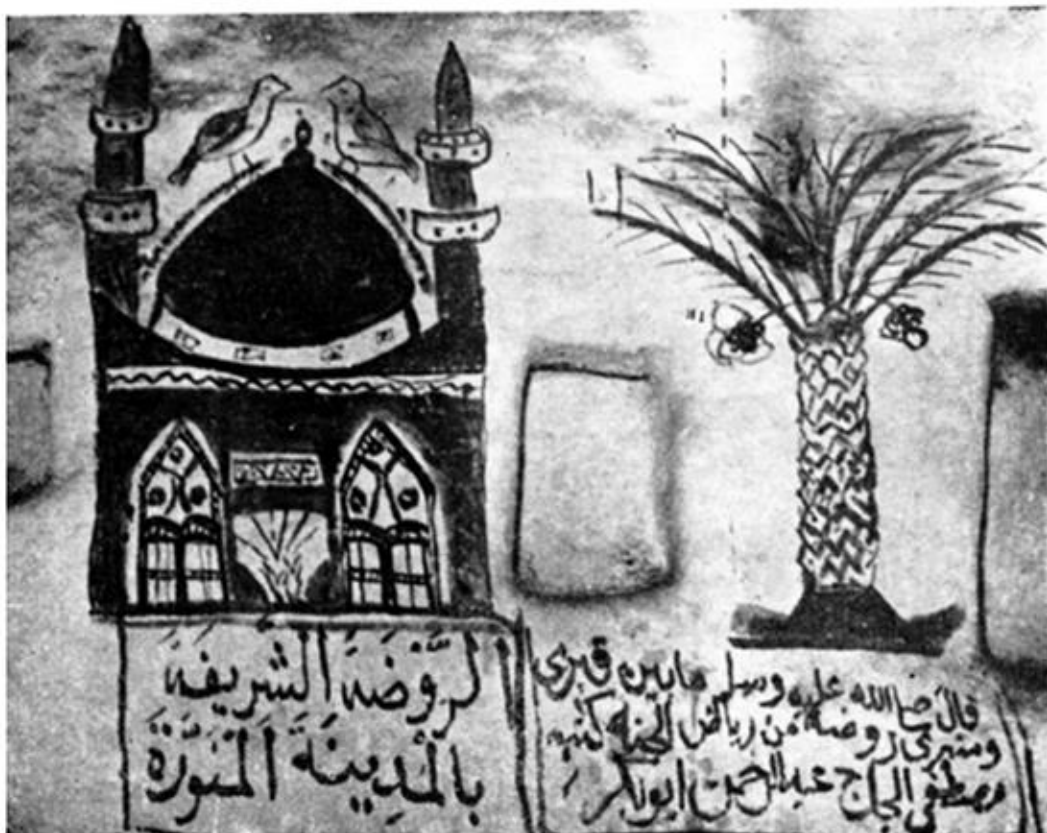 لرَّوْضَةَ الشَّرِيفَةَ
بالْمَدِينَةَ الْمَنَوَّرَةَ
قال صلا الله عليه وسلم مابين قبرى
ومنبرى روضة من رياض الجنة كتبه
مصطفى الحاج عبدالرحمن ابوبكر